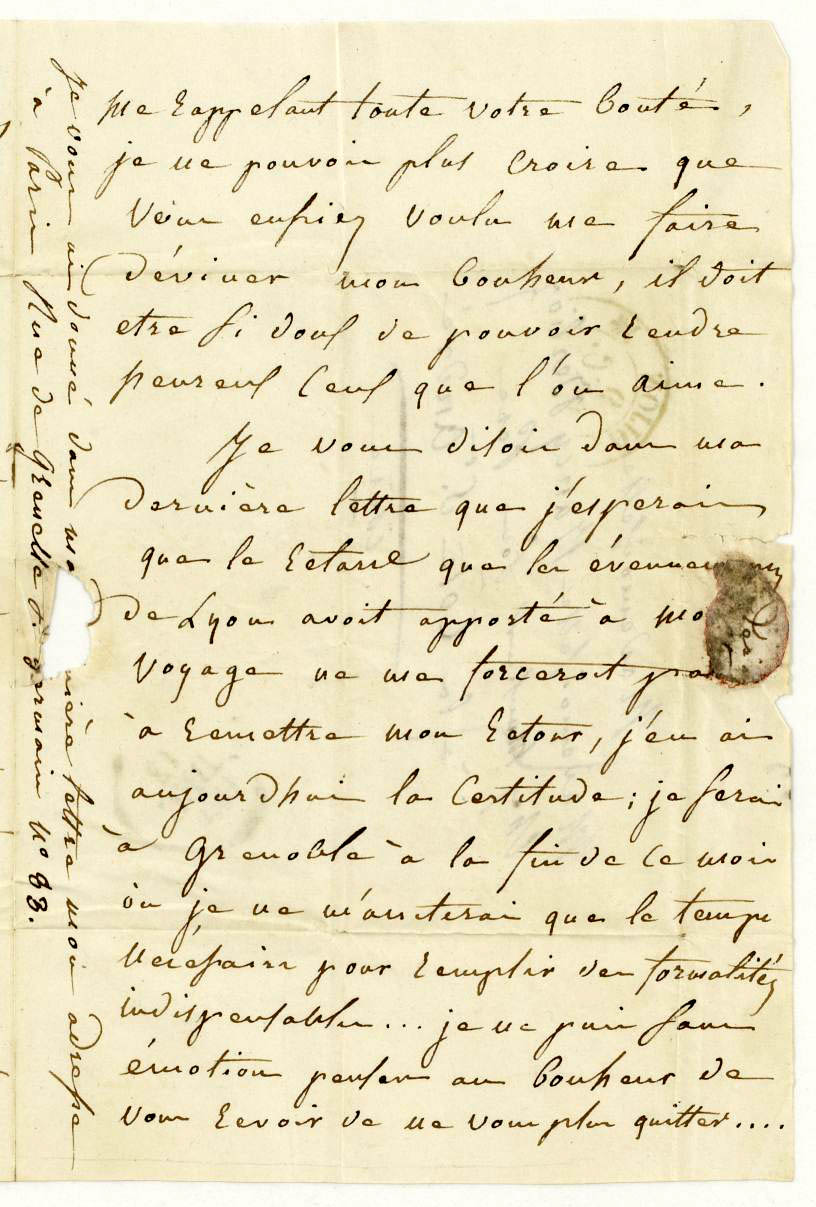 me rappelant toute votre bonté,
je ne pouvois plus croire que
vous eussiez voulu me faire
déviner mon bonheur, il doit
etre si doux de pouvoir rendre
heureux ceux que l'on aime.
Je vous disois dans ma
dernière lettre que j'esperais
que le retard que les évennemens
de Lyon avoit apporté à mon
voyage ne me forceroit pas
à remettre mon retour, j'en ai
aujourdhui la certitude; je serai
à Grenoble à la fin de ce mois
où je ne m'arreterai que le temps
necessaire pour remplir des formalités
indispensables... je ne puis sans
émotion penser au bonheur de
vous revoir de ne vous plus quitter....
Je vous ai donné dans ma dernière lettre mon adresse
à Paris Rue de Grenelle S. germain n° 83.